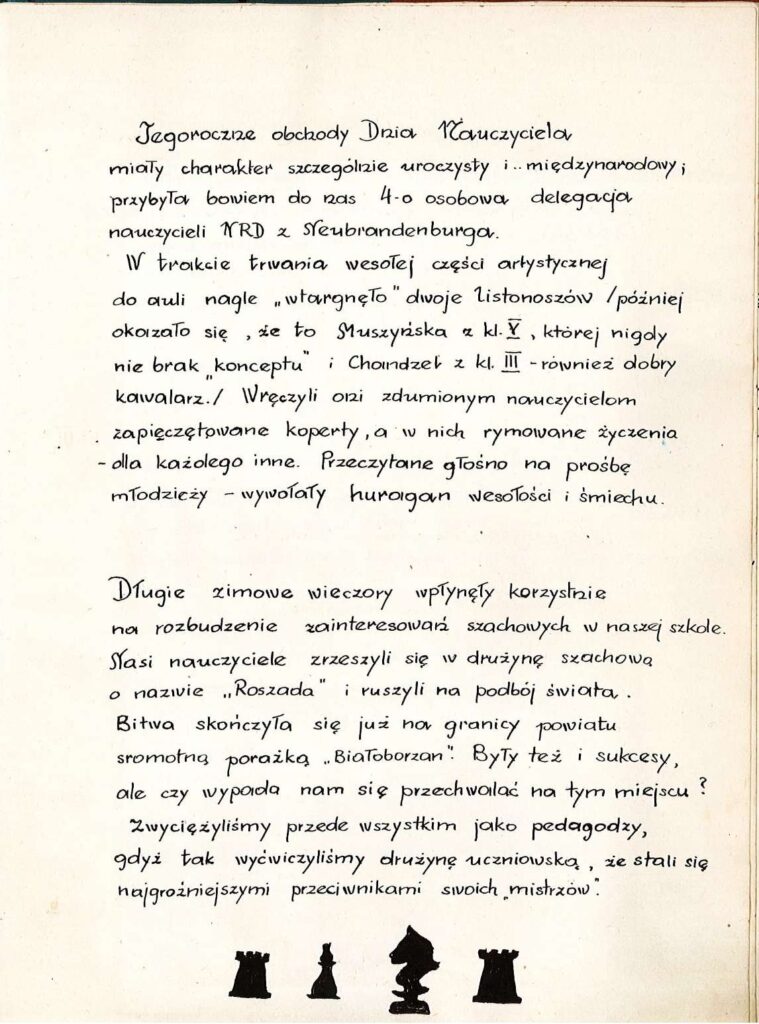 Tegoroczne obchody Dnia Nauczyciela
miały charakter szczególnie uroczysty i.. międzynarodowy;
przybyła bowiem do nas 4-o osobowa delegacja
nauczycieli NRD z Neubrandenburga.
W trakcie trwania wesołej części artystycznej
do auli nagle „wtargnęło" dwoje listonoszów /później
okazało się, że to Muszyńska z kl. V, której nigdy
nie brak „konceptu" i Chandzel z kl. III - również dobry
kawalarz./ Wręczyli oni zdumionym nauczycielom
zapieczętowane koperty, a w nich rymowane życzenia
- dla każdego inne. Przeczytane głośno na prośbę
młodzieży - wywołały huragan wesołości i śmiechu.
Długie zimowe wieczory wpłynęły korzystnie
na rozbudzenie zainteresowań szachowych w naszej szkole.
Nasi nauczyciele zrzeszyli się w drużynę szachową
o nazwie „Roszada" i ruszyli na podbój świata.
Bitwa skończyła się już na granicy powiatu
sromotną porażką „Białoborzan". Były też i sukcesy,
ale czy wypada nam się przechwalać na tym miejscu?
Zwyciężyliśmy przede wszystkim jako pedagodzy,
gdyż tak wyćwiczyliśmy drużynę uczniowską, że stali się
najgroźniejszymi przeciwnikami swoich „mistrzów".